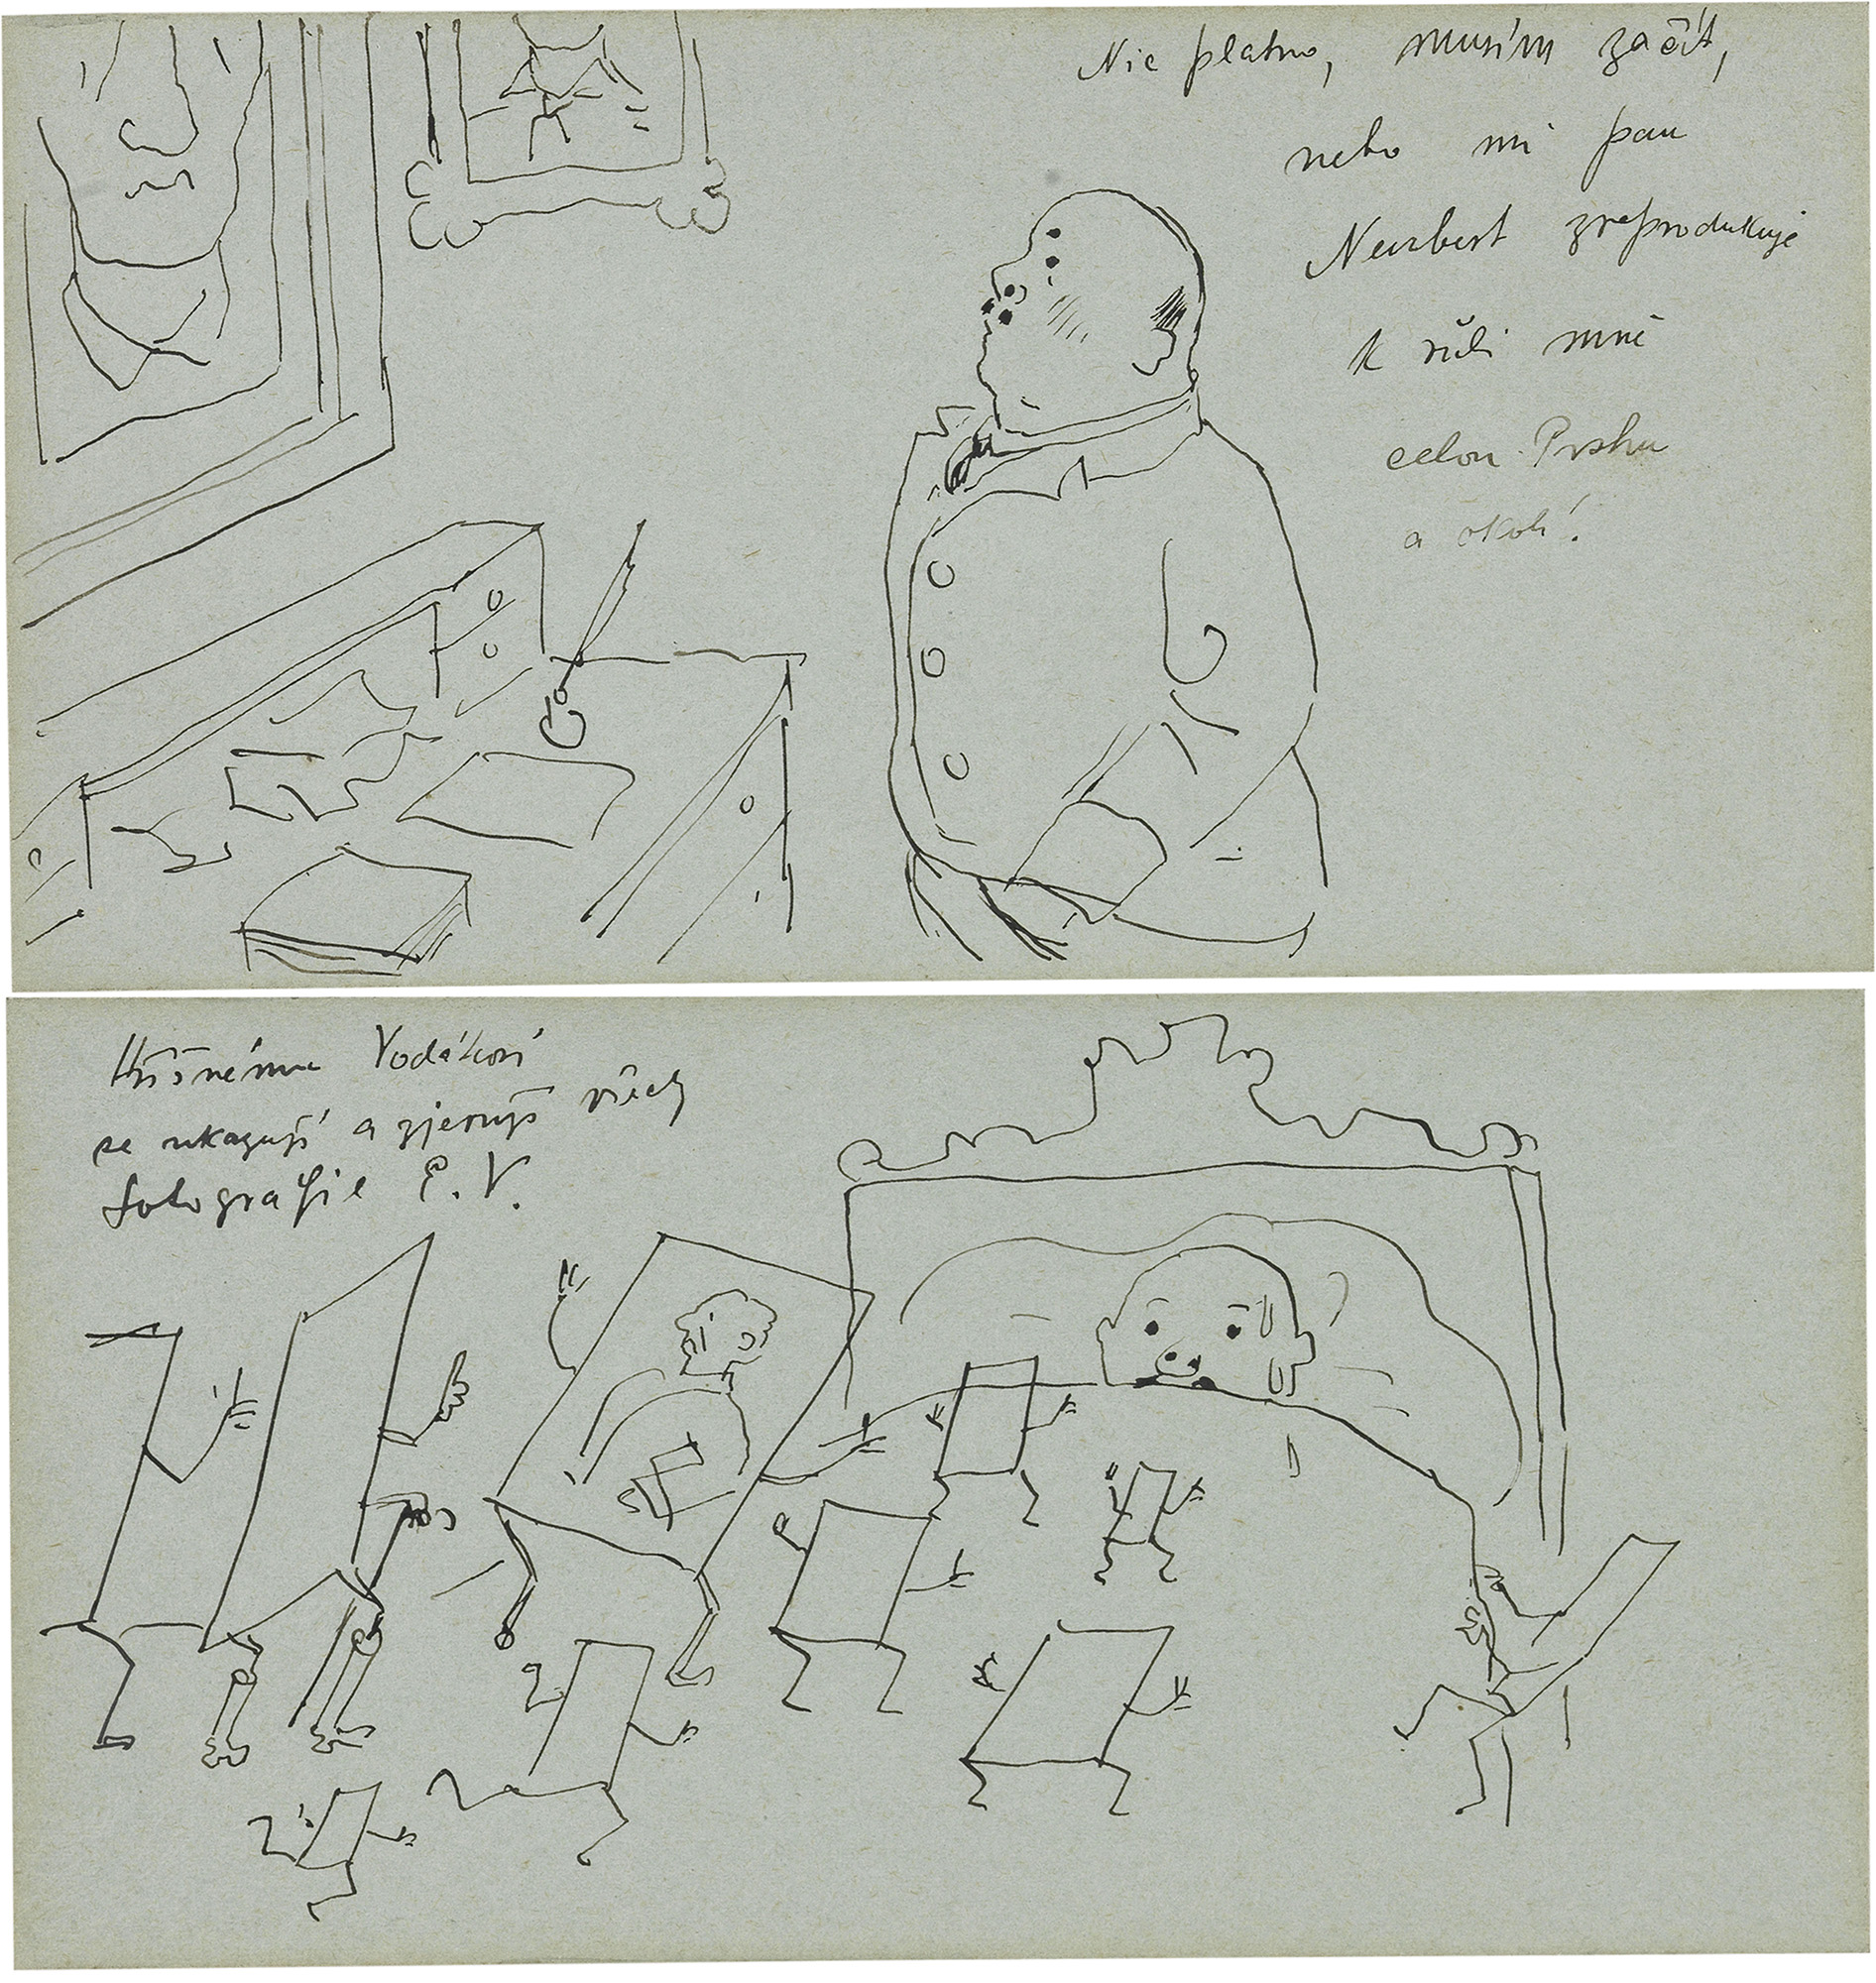 Nic platno, musím začít,
nebo mi pan
Neubert zreprodukuje
k vůli mně
celou Prahu
a okolí!
Hříšnému Vodákovi
se ukazují a zjevují všecky
fotografie E. V.